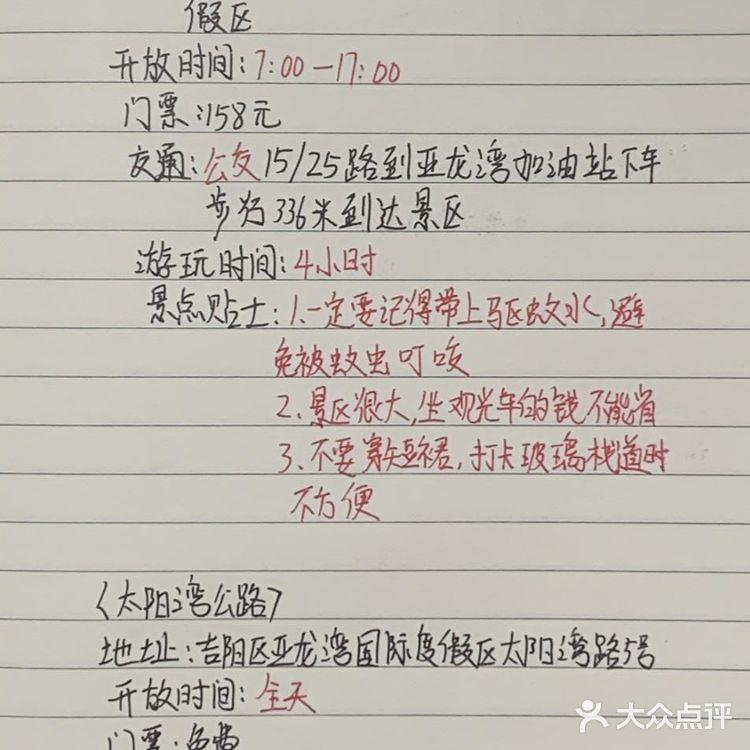 假区
开放时间:7:00—17:00
门票:158元
交通:公交15/25路到亚龙湾加油站下车
步行336米到达景区
游玩时间:4小时
景点贴士:1.一定要记得带上驱蚊水,避
免被蚊虫叮咬
2、景区很大,坐观光车的钱不能省
3、不要穿短裙,打卡玻璃栈道时
不方便
《太阳湾公路》
地址:吉阳区亚龙湾国际度假区太阳湾路5号
开放时间:全天
门票:免费
大众点评